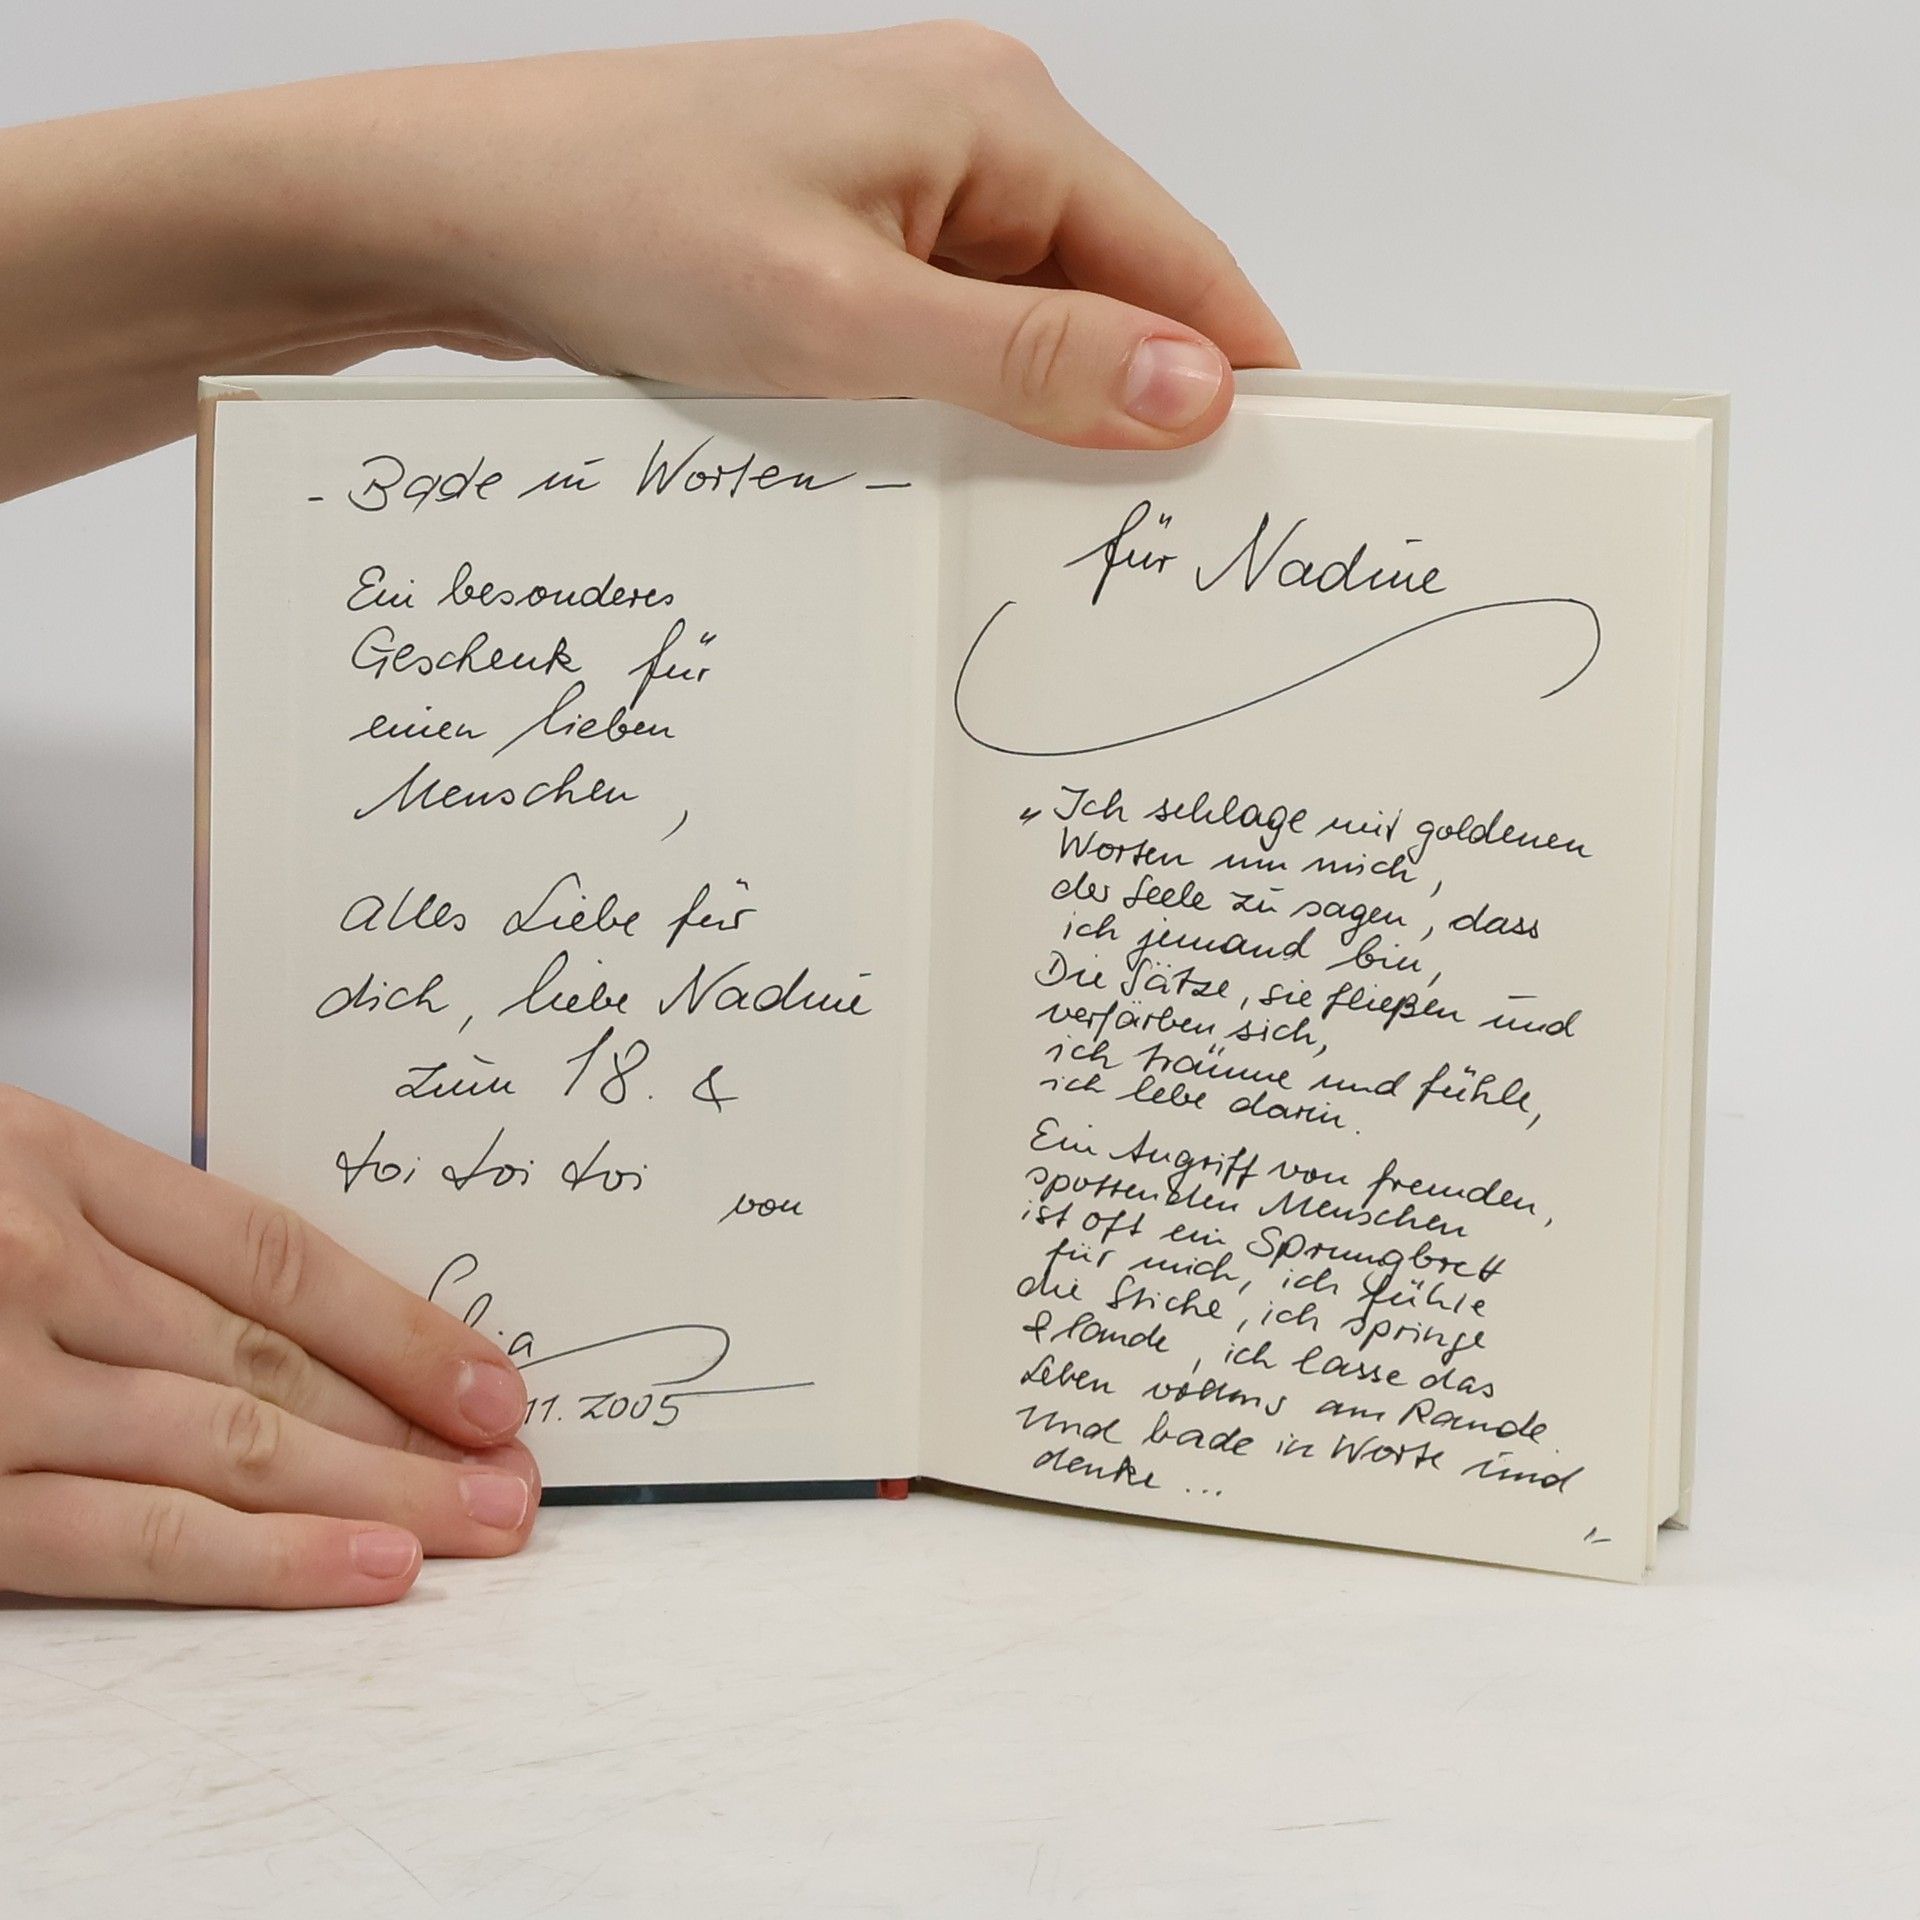 - Bade in Worten -
Ein besonderes
Geschenk für
einen lieben
Menschen,
Alles Liebe für
dich, liebe Nadine
zum 18. &
toi toi toi
von
11. 2005
für Nadine
"Ich schlage mit goldenen
Worten um mich,
der Seele zu sagen, dass
ich jemand bin,
Die Sätze, sie fließen und
verfärben sich,
ich träume und fühle,
ich lebe darin.
Ein Angriff von fremden,
spottenden Menschen
ist oft ein Sprungbrett
für mich, ich fühle
die Stiche, ich springe
& lande, ich lasse das
Leben am Rande.
Und bade in Worte und
denke ...
"